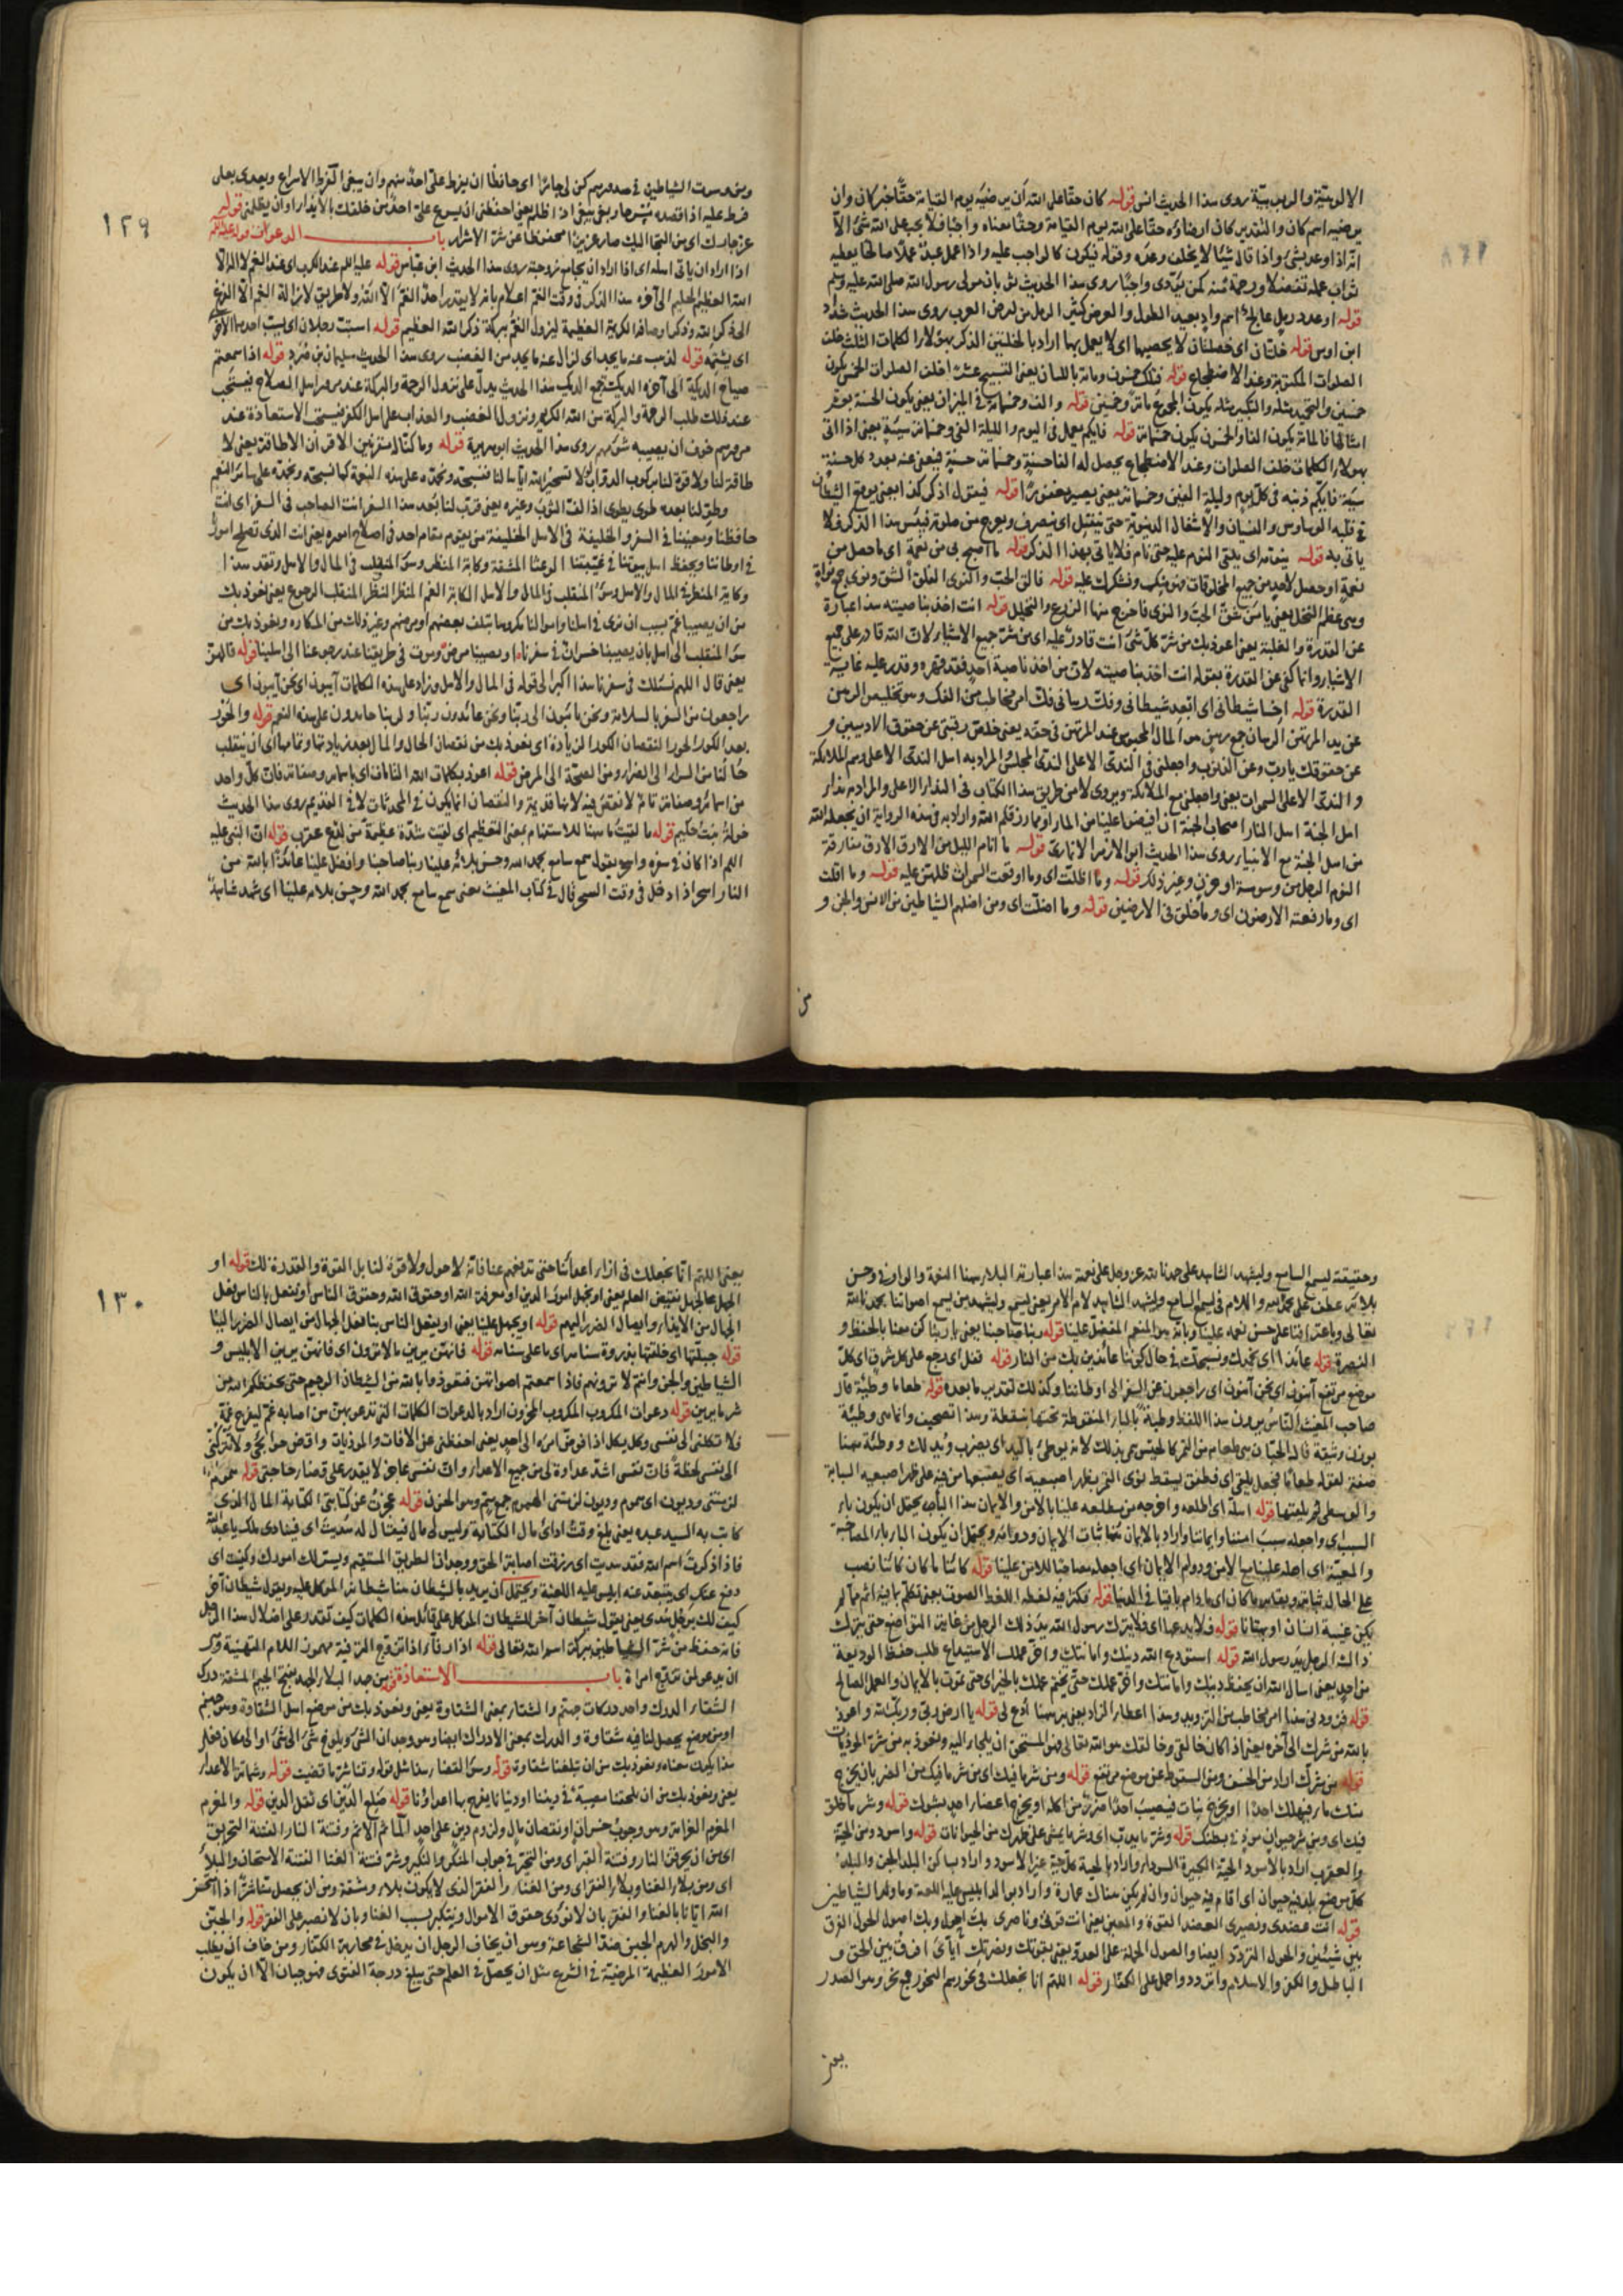 الالوهيّة والربوبيّة روى هذا الحديث انس قوله كان حقّا على الله أن يرضيَه يوم القيامة حقًّا خبر كان وان
يرضيه اسم كان والتقدير كان ارضاؤه حقّا على الله يوم القيامة وحقّا معناه واجبًا فلا يجب على الله شئ الّا
انّه اذا وعد بشئ واذا قال شيئًا لا يخلف وعدَه وقوله فيكون كالواجب عليه واذا عمل عبدٌ عملًا صالحًا يعطيه
ثواب عمله تفضّلًا ورحمةً منه كمن يؤدى واجبًا روى هذا الحديث ثوبان مولى رسول الله صلى الله عليه وسلم
قوله او عدد رمل عالج اسم وادٍ بعيد الطول والعرض كثير الرمل من ارض العرب روى هذا الحديث شدّاد
ابن اوس قوله خلتان اى خصلتان لا يحصيهما اى لا يعمل بهما اراد بالخلتين الذكر بهؤلاء الكلمات الثلث خلف
الصلوات المكتوبة وعند الاضطجاع قوله فتلك خمسون ومائة باللسان يعنى التسبيح عشرا خلف الصلوات الخمس يكون
خمسين والتحميد مثله والتكبير مثله يكون المجموع مائة وخمسين قوله والف وخمسمائة فى الميزان يعنى يكون الحسنة بعشر
امثالها فالمائة يكون الفا والخمسون يكون خمسمائة قوله فايكم يعمل فى اليوم والليلة الفى وخمسمائة سيّئة يعنى اذا اتى
بهؤلاء الكلمات خلف الصلوات وعند الاضطجاع يحصل له الفا حسنةٍ وخمسمائة حسنةٍ فيعفى عنه بعدد كل حسنة
سيّئة فايّكم ذنبه فى كلّ يوم وليلة الفين وخمسمائة يعنى يصير مغفورًا قوله فيقول اذكر كذا يعنى يوقع الشيطان
فى قلبه الوساوس والنسيان والاشغال الدنيويّة حتى ينفتل اى ينصرف ويفرغ من صلوته فينسى هذا الذكر فلا
ياتى به قوله ينوّمه اى يلقى النوم عليه حتى نام فلا ياتى بهذا الذكر قوله ما اصبح بى من نعمةٍ اى ما حصل من
نعمةٍ او حصل لاحدٍ من جميع المخلوقات فمنك ونشكرك عليه قوله فالق الحبّ والنوى الفلق الشق
وهى عظم النخل يعنى يا من شقّ الحبّ والنوى فاخرج منها الزرع والنخيل قوله انت اخذ بناصيته هذا عبارة
عن القدرة والغلبة يعنى اعوذ بك من شرّ كلّ شئ انت قادرٌ عليه اى من شرّ جميع الاشياء لانّك قادر على جميع
الاشياء وانّما كنى عن القدرة بقوله انت اخذ بناصيته لانّ من اخذ ناصية احدٍ فقد قهره وقدر عليه غاية
القدرة قوله اخسا شيطانى اى ابعد شيطانى وفكّ رهانى فكّ امر مخاطب من الفكّ وهو تخليص الرهن
عن يد المرتهن الرهان جمع رهنٍ هو المال المحبوس عند المرتهن فى حقّه يعنى خلّص رقبتى عن حقوق الادميين و
عن حقوقك يا ربّ وعن الذنوب واجعلنى فى الندىّ الاعلى الندىّ المجلس والمراد به اهل الندىّ الاعلى وهم الملائكة
والندىّ الاعلى السموات يعنى واجعلنى مع الملائكة ويروى لا من طريق هذا الكتاب فى النداء الاعلى والمراد به نداء
اهل الجنة اهل النار اصحاب الجنة أن افيضوا علينا من الماء او مما رزقكم الله واراد به فى هذه الرواية ان يجعله الله
من اهل الجنة مع الانبياء روى هذا الحديث ابو الازهر الانمارى قوله ما انام الليل من الارق الارق مفارقة
النوم الرجل من وسوسة او حزن وغير ذلك قوله وما اظلّت اى وما اوقعت السموات ظلّهنّ عليه قوله وما اقلّت
اى وما رفعته الارضون اى وما خلق فى الارضين قوله وما اضلّت اى ومن اضلهم الشياطين من الانس والجنّ و
من
١٢٩
ومن وسوست الشياطين فى صدورهم كن لى جارًا اى حافظا ان يفرط علىّ احدٌ منهم وان يبغى الفرط الاسراع ويعدى بعلى
فرط عليه اذا قصده بشرّ وبغى يبغى اذا ظلم يعنى احفظنى ان يسرع علىّ احدٌ من خلقك بالايذاء او ان يظلمنى قوله
عزّ جارك اى من التجا اليك صار عزيزًا محفوظا عن شرّ الاشرار باب الدعوات
اذا اراد ان ياتى اهله اى اذا اراد ان يجامع زوجته روى هذا الحديث ابن عباس قوله عليه السلم عند الكرب اى عند الغم لا اله الّا
الله العظيم الحليم الى آخره هذا الذكر فى وقت الغمّ اعلام بانه لا يقدر احدٌ الغمّ الّا الله ولا طريق لازالة الغم الّا
الى ذكر الله وذكر اوصافه الكريمة العظيمة ليزول الغمّ ببركة ذكر الله العظيم قوله استبّ رجلان اى يسبّ احدهما الآخر
اى يشتمه قوله لذهب عنه ما يجد اى لزال عنه ما يجد من الغضب روى هذا الحديث سليمان بن صُرَد قوله اذا سمعتم
صياح الديكة الى آخره الديكة جمع الديك هذا الحديث يدلّ على نزول الرحمة والبركة عند مرور اهل الصلاح فيستحب
عند ذلك طلب الرحمة والبركة من الله الكريم ونزول الغضب والعذاب على اهل الكفر فيستحب الاستعاذة عند
مرورهم خوف ان يصيبه شرّهم روى هذا الحديث ابو هريرة قوله وما كنّا له مقرنين الاقران الاطاقة يعنى لا
طاقة لنا ولا قوة لنا بركوب الدوابّ لولا تسخير الله ايّاها لنا فنسبّحه ونحمده على هذه النعمة كما نسبّحه ونحمده على سائر النعم
وطوِ لنا بعده طوى يطوى اذا لفّ الثوب وغيره يعنى قرّب لنا بُعد هذا السفر انت الصاحب فى السفر اى انت
حافظنا ومعيننا فى السفر والخليفة فى الاهل الخليفة من يقوم مقام احد فى اصلاح اموره يعنى انت الذى تصلح امورنا
فى اوطاننا وتحفظ اهل بيوتنا فى غيبتنا الوعثاء المشقة وكآبة المنظر وسوء المنقلب فى المال والاهل
وكآبة المنظر فى المال والاهل وسوء المنقلب فى المال والاهل الكآبة الغم المنظر النظر المنقلب الرجوع يعنى نعوذ بك
من ان يصيبنا غمّ بسبب ان نرى فى اهلنا واموالنا مكروها بتلف بعضهم او مرضهم وغير ذلك من المكاره ونعوذ بك من
سوء المنقلب الى اهل بان يصيبنا خسران فى سفرنا او يصيبنا مرض وموت فى طريقنا عند رجوعنا الى اهلينا قوله قالهنّ
يعنى قال اللهم نسئلك فى سفرنا هذا اكبر الى قوله فى المال والاهل وزاد على هذه الكلمات آيبون اى نحن آيبون اى
راجعون من السفر بالسلامة ونحن تائبون الى ربّنا ونحن عابدون ربّنا ولربنا حامدون على هذه النعم قوله والحور
بعد الكور الحور النقصان الكور الزيادة اى نعوذ بك من نقصان الحال والمال بعد زيادتها وتمامها اى ان ينقلب
حالنا من السراء الى الضراء ومن الصحّة الى المرض قوله اعوذ بكلمات الله التامات اى باسمائه وصفاته فانّ كلّ واحد
من اسمائه وصفاته تامّ لا نقص فيه لانها قديمة والنقصان انما يكون فى المحدثات لا فى القديم روى هذا الحديث
خولة بنت حكيم قوله ما لقيتُ ما ههنا للاستفهام بمعنى التعظيم اى لقيت شدّة عظيمة من لدغ عقرب قوله انّ النبى عليه
السلم اذا كان فى سفره واسحر يقول سمع سامع بحمد الله وحسن بلائه علينا ربنا صاحبنا وافضل علينا عائذًا بالله من
النار اسحر اذا دخل فى وقت السحر قال فى كتاب المغيث معنى سمع سامع بحمد الله وحسن بلائه علينا اى شهد شاهد
وحقيقته ليسمع السامع وليشهد الشاهد على حمدنا لله عزّ وجل على نعمه هذا عبارته البلاء ههنا النعمة والواو فى وحسن
بلائه عطف على بحمد الله واللام فى ليسمع السامع وليشهد الشاهد لام الامر يعنى ليسمع وليشهد من يسمع اصواتنا بحمدنا لله
تعالى وباعترافنا على حسن نعمه علينا وبانه هو المنعم المفضل علينا قوله ربنا صاحبنا يعنى يا ربّنا كن معنا بالحفظ و
النصرة قوله عائذًا اى نحمدك ونسبحك فى حال كوننا عائذين بك من النار قوله قفل اى رجع على كل شرفٍ اى كلّ
موضع مرتفع آيبون اى نحن آيبون اى راجعون عن السفر الى اوطاننا وكذلك تقدير ما بعده قوله طعاما ووطبة قال
صاحب المغيث الناسُ يروون هذا اللفظ وطبة بالباء المنقوطة تحتها بنقطة وهذا تصحيف وانما هى وطيئة
بوزن وثيقة قال الجبّان هى طعام من التمر كالحيس سمى بذلك لانه يوطئ باليد اى يضرب ويُدلك ووطيئة ههنا
صفة لقوله طعامًا فجعل يلقى اى فطفق يسقط نوى التمر بظهر اصبعيه اى يضعها من فيه على ظهر اصبعيه السبابة
والوسطى ثم يلقيها قوله اهلّه اى اطلعه واخرجه من مطلعه علينا بالامن والايمان هذا الباء يحتمل ان يكون باء
السبب اى واجعله سبب امننا وايماننا واراد بالايمان ههنا ثبات الايمان ودوامه ويحتمل ان يكون الباء باء المصاحبة
والمعيّة اى اهله علينا مع الامن ودوام الايمان اى اجعله مصاحبا للامن علينا قوله كائنًا ما كان كائنًا نصب
على الحال ثباته وبقائه ما كان اى ما دام باقيا فى الدنيا قوله فكثر فيه لغطه اللغط الصوت يعنى تكلّم بما فيه اثم ما لم
يكن غيبة انسان او بهتانا قوله فلا يدعها اى فلا يترك رسول الله يد ذلك الرجل من غاية التواضع حتى يترك
ذلك الرجل يَد رسول الله قوله استودع الله دينك وامانتك وآخر عملك الاستيداع طلب حفظ الوديعة
من احدٍ يعنى اسال الله ان يحفظ دينك وامانتك وآخر عملك حتّى يختم عملك بالخير اى حتى تموت بالايمان والعمل الصالح
قوله فزوّدنى هذا امر مخاطب من التزويد وهذا اعطاء الزاد يعنى ههنا اُدع لى قوله يا ارض ربّى وربّك الله واعوذ
بالله من شرك الى آخره يعنى اذا كان خالقى وخالقك هو الله تعالى فهو المستحق ان يلجاء اليه ونعوذ به من شرّ الموذيات
قوله من شرّك اراد من الخسف ومن السقوط عن موضع مرتفع قوله ومن شرّ ما فيك اى من شر ما فيك من الضرر بان يخرج
منك ماء فيهلك احدًا او يخرج نبات فيصيب احدًا ضرر من اكله او يجرح اعضاء احدٍ بشوك قوله وشر ما خلق
فيك اى ومن شر حيوانٍ موذٍ فى بطنك قوله وشر ما يدبّ اى وشر ما يمشى على ظهرك من الحيوانات قوله واسود ومن الحيّة
والعقرب اراد بالاسود الحيّة الكبيرة السوداء واراد بالحية كلّ حيّة غير الاسود واراد بساكن البلد الجن والبلد
كلّ موضع يلد فيه حيوان اى اقام فيه حيوان وان لم يكن هناك عمارة واراد بوالد ابليس عليه اللعنة وما ولد الشياطين
قوله انت عضدى ونصيرى العضد القوة والمعين يعنى انت قوتى وناصرى بك احول وبك اصول الحول الفرق
بين شيئين والحول التردّد ايضا والصول الحملة على العدو يعنى بقوتك ونصرتك ايّاى افرق بين الحق و
الباطل والكفر والاسلام واتردد واحمل على الكفّار قوله اللهم انا نجعلك فى نحورهم النحور جمع نحر وهو الصدر
يعنى
١٣٠
يعنى اللهم انا نجعلك فى ازاء اعدائنا حتى تدفعهم عنّا فانّه لا حول ولا قوة لنا بل القوة والقدرة لك قوله او
الجهل نقيض العلم يعنى او نجهل امور الدين او معرفة الله او حقوق الله وحقوق الناس او نفعل بالناس فعل
الجهال من الايذاء وايصال الضرر اليهم قوله او يجهل علينا يعنى او يفعل الناس بنا فعل الجهال من ايصال الضرر الينا
قوله جبلتها اى خلقتها بذروة سنامه اى ما على سنامه قوله فانهنّ يرين ما لا ترون اى فانهن يرين الابليس و
الشياطين والجنّ وانتم لا ترونهم فاذا سمعتم اصواتهن فتعوّذوا بالله من الشيطان الرجيم حتى يحفظكم الله من
شر ما يرين قوله دعوات المكروب المكروب المحزون اراد بالدعوات الكلمات التى تدعو بهنّ من اصابه غمّ ليفرج غمّه
فلا تكلنى الى نفسى وكل يكل اذا فوّض امره الى احدٍ يعنى احفظنى عن الافات والموذيات واقض حوائجى ولا تتركنى
الى نفسى لحظةً فانّ نفسى اشدّ عداوة لى من جميع الاعداء وانّ نفسى عاجز لا يقدر على قضاء حاجتى قوله همومٌ
لزمتنى وديون اى هموم وديون لزمتنى الهموم جمع همّ وهو الحزن قوله عجزتُ عن كتابتى الكتابة المال الذى
كاتب به السيد عبده يعنى بلغ وقت اداى مال الكتابة وليس لى مال
فاذا ذكرت اسم الله فقد هديت اى رزقت اصابة الحق ووجدان الطريق المستقيم ويسّر لك امورك وكفيت اى
دفع عنك اى يتبعد عنه ابليس عليه اللعنة ويحتمل ان يريد بالشيطان هنا شيطانه الموكّل عليه ويقول شيطان آخر
كيف لك برجلٍ هُدى يعنى يقول شيطان آخر للشيطان الموكل على قائل هذه الكلمات كيف تقدر على اضلال هذا الرجل
فانه حفظ من شرّ الشياطين ببركة اسم الله تعالى قوله اذا رفّأ اذا تزوج الترفية مهموز اللام التهنية وهى
ان يدعو لمن تزوّج امراة باب الاستعاذة من جهد البلاء الجهد بفتح الجيم المشقة ودرك
الشقاء الدرك واحد دركات جهنم والشقاء بمعنى الشقاوة يعنى ونعوذ بك من موضع اهل الشقاوة وهى جهنم
او من موضع يحصل لنا فيه شقاوة والدرك بمعنى الادراك ايضا وهو وجدان الشئ وبلوغ شئ الى شئ او الى مكان
هذا يكون معناه ونعوذ بك من ان تبلغنا شقاوة قوله وسوء القضاء هذا مثل قوله وقنا شرّ ما قضيت قوله وشماتة الاعداء
يعنى ونعوذ بك من ان يلحقنا مصيبة فى ديننا او دنيانا يفرح بها اعداؤنا قوله ضلع الدين اى ثقل الدين قوله والمغرم
المغرم الغرامة وهى وجوب خسران او نقصان مالٍ ولزوم دينٍ على احدٍ الماثم الاثم وفتنة النار الفتنة التحريق
اى من ان يحرقنى النار وفتنة القبر اى ومن التحيّر فى جواب المنكر والنكير وشرّ فتنة الغنا الفتنة الامتحان والبلاء
اى ومن بلاء الغنا وبلاء الفقر اى ومن الغنا والفقر الذى لا يكون بلاء ومشقة ومن ان يحصل منّا شرّ اذا امتحن
الله ايّانا بالغنا والفقر بان لا نؤدى حقوق الاموال ونتكبر بسبب الغنا وبان لا نصبر على الفقر قوله والجبن
والبخل والهرم الجبن ضدّ الشجاعة وهو ان يخاف الرجل ان يدخل فى محاربة الكفار ومن خاف ان يطلب
الامور العظيمة المرضيّة فى الشرع مثل ان يحصّل فى العلم حتى يبلغ درجة الفتوى فهو جبان الّا ان يكون